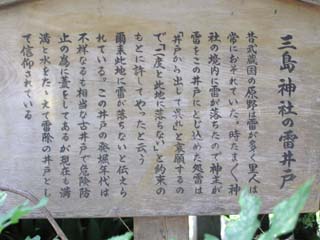 三島神社の雷井戸
昔武蔵国の原野は雷が多く里人は
常におそれていた。時たま〱神
社の境内に雷が落ちたので神主が
雷をこの井戸にとじ込めた処雷は
「井戸から出して呉れ」と哀願するの
で「二度と此地に落ちない」との約束の
もとに許してやったと云う
爾来此地に雷が落ちないと伝えら
れている。この井戸の発堀年代は
不祥なるも相当な古井戸で危険防
止の為に蓋をしてあるが現在も満
満と水をたゝえて雷除の井戸とし
て信仰されている